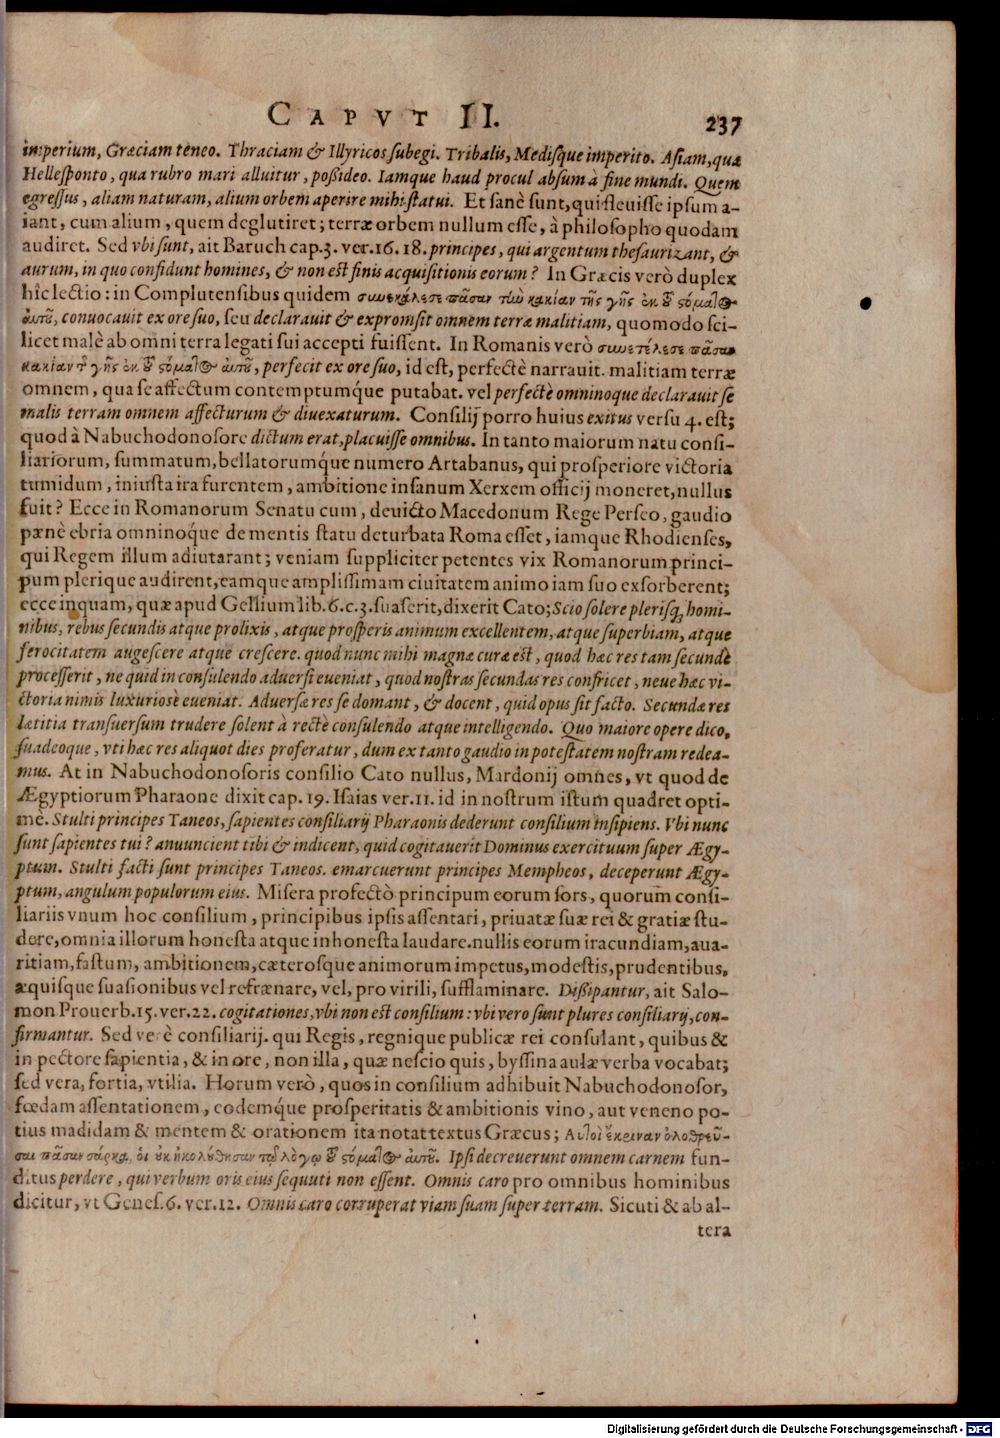 CAPVT II. 237
imperium, Græciam teneo. Thraciam & Illyricos subegi. Tribalis, Medisque imperito. Asiam, quæ
Hellesponto, qua rubro mari alluitur, possideo. Iamque haud procul absum à fine mundi. Quem
egressus, aliam naturam, alium orbem aperire mihi statui. Et sanè sunt, qui fleuisse ipsum a-
iant, cum alium, quem deglutiret; terræ orbem nullum esse, à philosopho quodam
audiret. Sed vbi sunt, ait Baruch cap. 3. ver. 16. 18. principes, qui argentum thesaurizant, &
aurum, in quo confidunt homines, & non est finis acquisitionis eorum? In Græcis verò duplex
hîc lectio: in Complutensibus quidem συνεκάλεσε πᾶσαν τὴν κακίαν τῆς γῆς ἐκ τοῦ στόματος
αὐτοῦ, conuocauit ex ore suo, seu declarauit & expromsit omnem terræ malitiam, quomodo sci-
licet malè ab omni terra legati sui accepti fuissent. In Romanis verò συνετέλεσε πᾶσαν
κακίαν τῆς γῆς ἐκ τοῦ στόματος αὐτοῦ, perfecit ex ore suo, id est, perfectè narrauit. malitiam terræ
omnem, qua se affectum contemptumq́ue putabat. vel perfectè omninoque declarauit se
malis terram omnem affecturum & diuexaturum. Consilij porro huius exitus versu 4. est;
quod à Nabuchodonosore dictum erat, placuisse omnibus. In tanto maiorum natu consi-
liariorum, summatum, bellatorumq́ue numero Artabanus, qui prosperiore victoria
tumidum, iniusta ira furentem, ambitione insanum Xerxem officij moneret, nullus
fuit? Ecce in Romanorum Senatu cum, deuicto Macedonum Rege Perseo, gaudio
pænè ebria omninoq́ue de mentis statu deturbata Roma esset, iamque Rhodienses,
qui Regem illum adiutarant; veniam suppliciter petentes vix Romanorum princi-
pum plerique audirent, eamque amplissimam ciuitatem animo iam suo exsorberent;
ecce inquam, quæ apud Gellium lib. 6. c. 3. suaserit, dixerit Cato; Scio solere plerisq; homi-
nibus, rebus secundis atque prolixis, atque prosperis animum excellentem, atque superbiam, atque
ferocitatem augescere atque crescere. quod nunc mihi magnæ curæ est, quod hæc res tam secundè
processerit, ne quid in consulendo aduersi eueniat, quod nostras secundas res confricet, neue hæc vi-
ctoria nimis luxuriosè eueniat. Aduersæ res se domant, & docent, quid opus sit facto. Secundæ res
lætitia transuersum trudere solent à rectè consulendo atque intelligendo. Quo maiore opere dico,
suadeoque, vti hæc res aliquot dies proferatur, dum ex tanto gaudio in potestatem nostram redea-
mus. At in Nabuchodonosoris consilio Cato nullus, Mardonij omnes, vt quod de
Ægyptiorum Pharaone dixit cap. 19. Isaias ver. 11. id in nostrum istum quadret opti-
mè. Stulti principes Taneos, sapientes consiliarij Pharaonis dederunt consilium insipiens. Vbi nunc
sunt sapientes tui? anuuncient tibi & indicent, quid cogitauerit Dominus exercituum super Ægy-
ptum. Stulti facti sunt principes Taneos. emarcuerunt principes Mempheos, deceperunt Ægy-
ptum, angulum populorum eius. Misera profectò principum eorum sors, quorum consi-
liariis vnum hoc consilium, principibus ipsis assentari, priuatæ suæ rei & gratiæ stu-
dere, omnia illorum honesta atque inhonesta laudare. nullis eorum iracundiam, aua-
ritiam, fastum, ambitionem, cæterosque animorum impetus, modestis, prudentibus,
æquisque suasionibus vel refrænare, vel, pro virili, sufflaminare. Dissipantur, ait Salo-
mon Prouerb. 15. ver. 22. cogitationes, vbi non est consilium: vbi vero sunt plures consiliarij, con-
firmantur. Sed verè consiliarij. qui Regis, regnique publicæ rei consulant, quibus &
in pectore sapientia, & in ore, non illa, quæ nescio quis, byssina aulæ verba vocabat;
sed vera, fortia, vtilia. Horum verò, quos in consilium adhibuit Nabuchodonosor,
fœdam assentationem, eodemq́ue prosperitatis & ambitionis vino, aut veneno po-
tius madidam & mentem & orationem ita notat textus Græcus; Αὐτοὶ ἔκριναν ὀλοθρεῦ-
σαι πᾶσαν σάρκα, οἳ οὐκ ἠκολούθησαν τῷ λόγῳ τοῦ στόματος αὐτοῦ. Ipsi decreuerunt omnem carnem fun-
ditus perdere, qui verbum oris eius sequuti non essent. Omnis caro pro omnibus hominibus
dicitur, vt Genes. 6. ver. 12. Omnis caro corruperat viam suam super terram. Sicuti & ab al-
tera
Digitalisierung gefördert durch die Deutsche Forschungsgemeinschaft - DFG